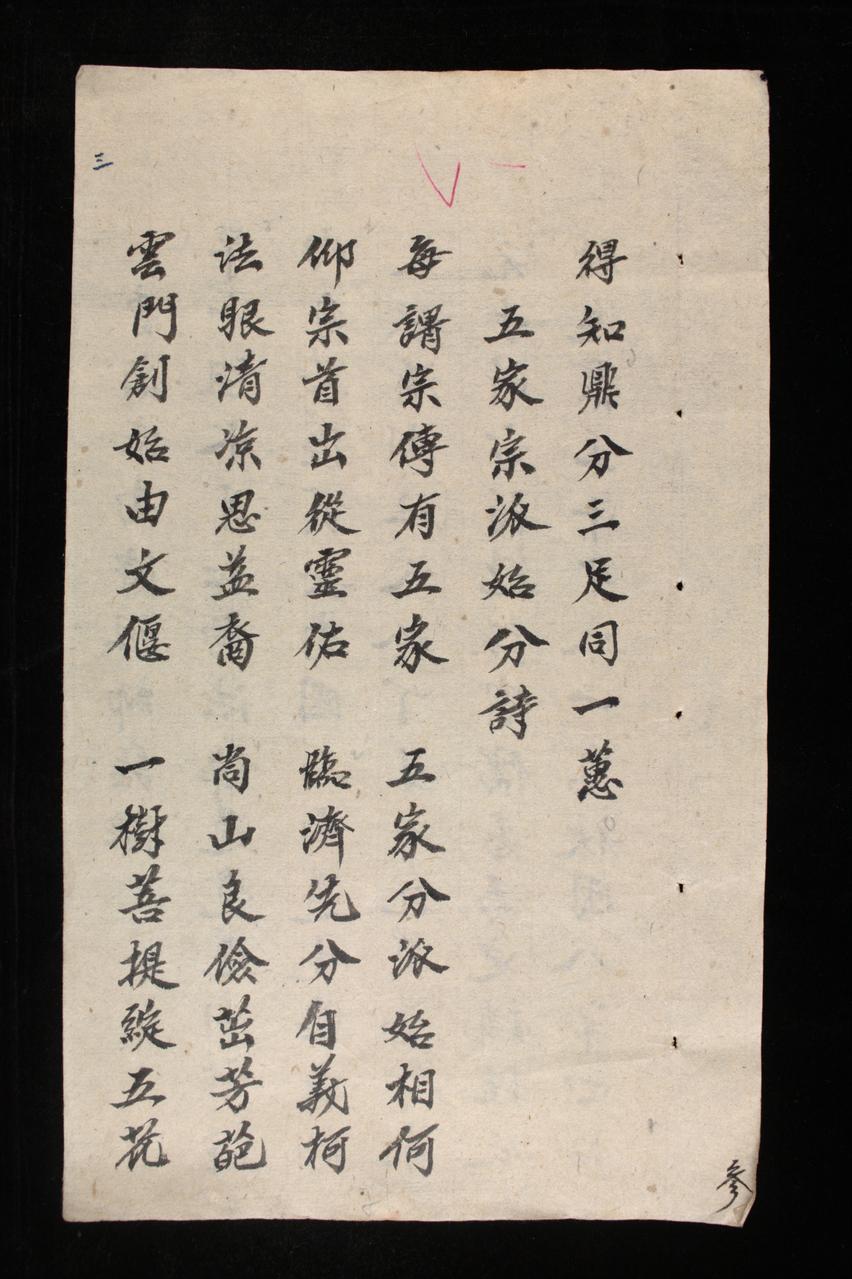 得知鼎分三足同一蔥
五家宗派始分詩
每謂宗傳有五家 五家分派始相何
仰宗首出從靈佑 臨濟先分自義柯
法眼清凉思益裔 尚山良儉茁芳葩
雲門創始由文偃 一樹菩提綻五花
三
參